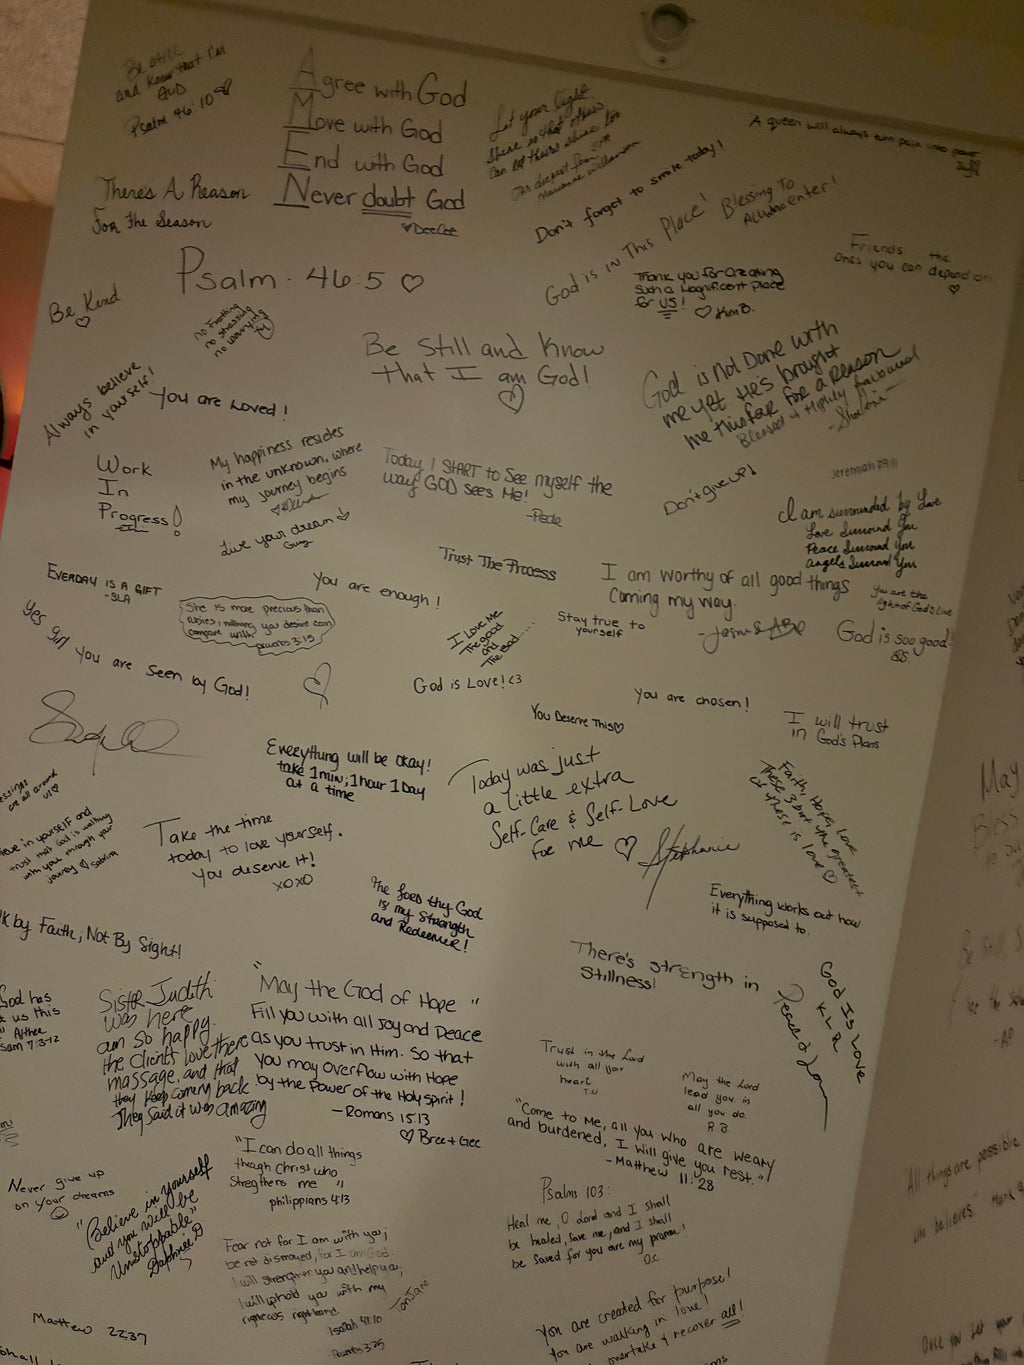 Be still
and know that I'm
GOD
Psalm 46:10
Agree with God
Move with God
End with God
Never doubt God
DeeCee
Let your light
shine so that others
Our deepest fear
Marianne Williamson
A queen will always turn pain into power
Don't forget to smile today!
There's A Reason
For the Season
God is in This Place!
Blessing To
All who enter!
Friends the
ones you can depend on
Psalm. 46:5
Thank you for creating
such a magnificent place
for US!
Kim B.
Be Kind
no Fretting
no stressing
no worrying
Be Still and Know
that I am God!
God is Not Done with
me yet He's brought
me this far for a reason
Blessed & Highly Favoured
Always believe
in yourself!
You are Loved!
Work
In
Progress!
My happiness resides
in the unknown, where
my journey begins
Today I START to see myself the
way GOD sees Me!
Don't give up!
Jeremiah 29:11
I am surrounded by Love
Love Surround You
Peace Surround You
Angels Surround You
Live your dream
Trust The Process
EVERDAY IS A GIFT
-SLA
You are enough!
I am worthy of all good things
coming my way.
You are the
light of God's Love
She is more precious than
rubies; nothing you desire can
compare with
proverbs 3:15
I Love Me
The good
and
The bad.....
Stay true to
yourself
God is soo good!
Yes girl
You are seen by God!
God is Love! <3
You are chosen!
You Deserve This
I will trust
in God's Plans
Everything will be okay!
take 1 min, 1 hour 1 Day
at a time
Today was just
a little extra
Self-Care & Self-Love
For me
Stephanie
Faith, Hope, Love
These 3 but the greatest
of these is love
are all around
us
in yourself and
trust that God is walking
with you through your
journey Sabrina
Take the time
today to love yourself.
You deserve it!
XOXO
the Lord thy God
is my Strength
and Redeemer!
Everything works out how
it is supposed to.
by Faith, Not By Sight!
There's strength in
Stillness!
God Is Love
God has
us this
Sister Judith
was here
am so happy.
the clients love there
massage, and that
they keep coming back
They said it was amazing
"May the God of Hope "
Fill you with all Joy and Peace
as you trust in Him. So that
you may overflow with Hope
by the Power of the Holy spirit!
- Romans 15:13
Bree + Gee
Trust in the Lord
with all your
heart
May the Lord
lead you in
all you do.
R.B.
"Come to Me, all you who are weary
and burdened, I will give you rest."
-Matthew 11:28
"I can do all things
through Christ who
Stregthens me "
philippians 4:13
Never give up
on your dreams
"Believe in yourself
and you will be
Unstoppable"
Daphnie D
Psalms 103:
Heal me, O Lord and I shall
be healed, save me, and I shall
be saved for you are my praise!
O.C
Fear not for I am with you;
be not dismayed, for I am God.
I will strengthen you and help you,
I will uphold you with my
righteous right hand.
Isaiah 41:10
Proverbs 3:25
Matthew 22:37
You are created for purpose!
You are walking in love!
overtake & recover all!
May
Bless
Be Still
-AP
"All things are possible
who believes."
Once you set your